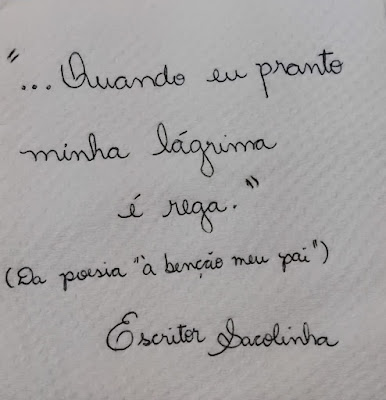 "... Quando eu pranto
minha lágrima
é rega."
(Da poesia "à benção meu pai")
Escritor Sacolinha